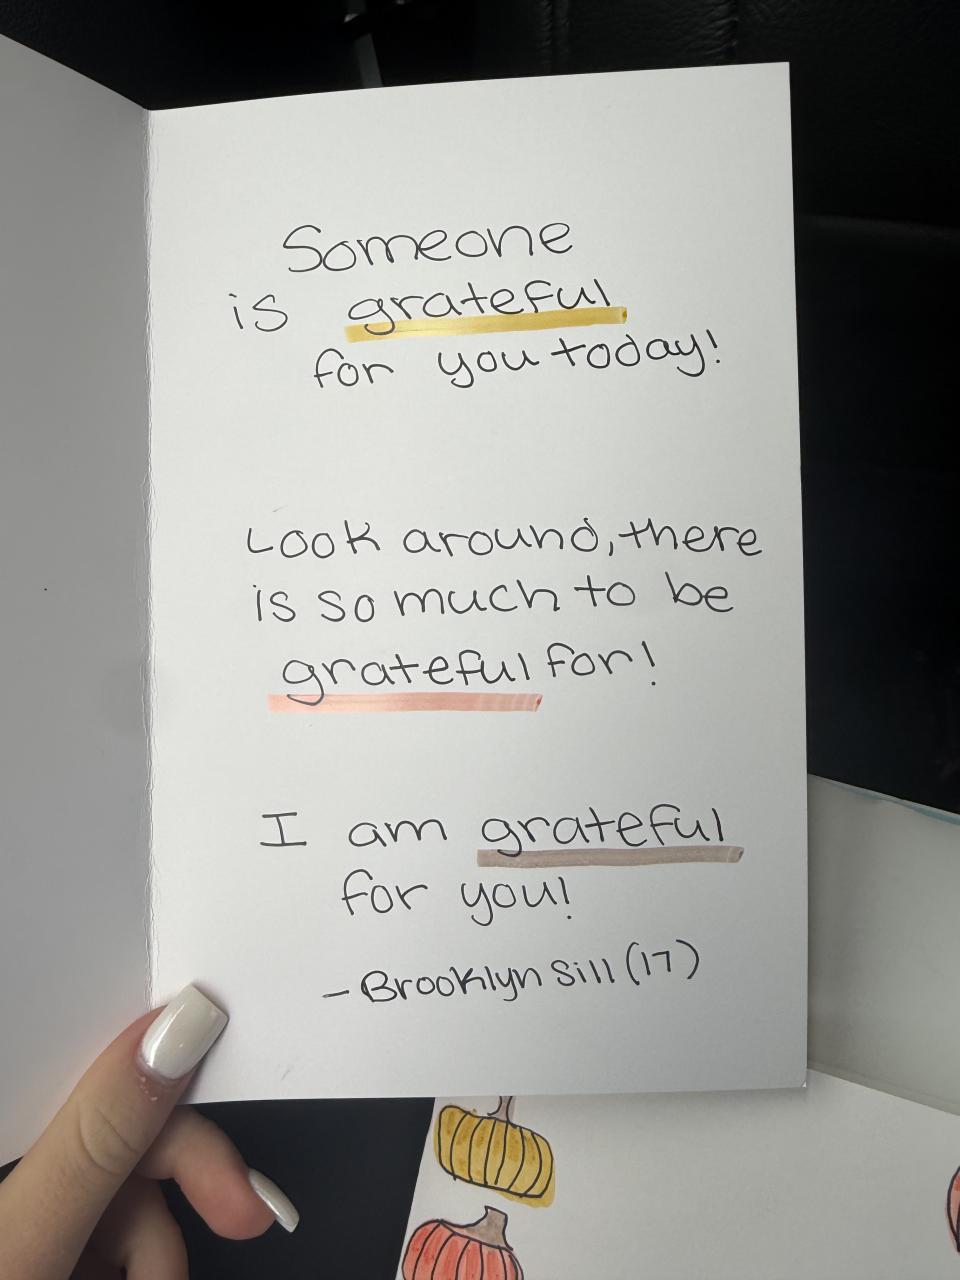 Someone
is grateful
for you today!
Look around, there
is so much to be
grateful for!
I am grateful
for you!
- Brooklyn Sill (17)